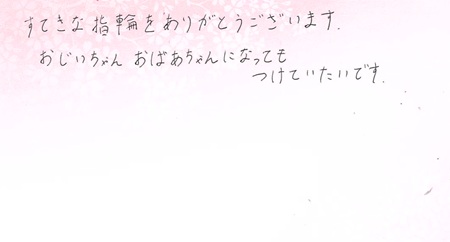 すてきな指輪をありがとうございます.
おじいちゃん おばあちゃんになっても
つけていたいです.